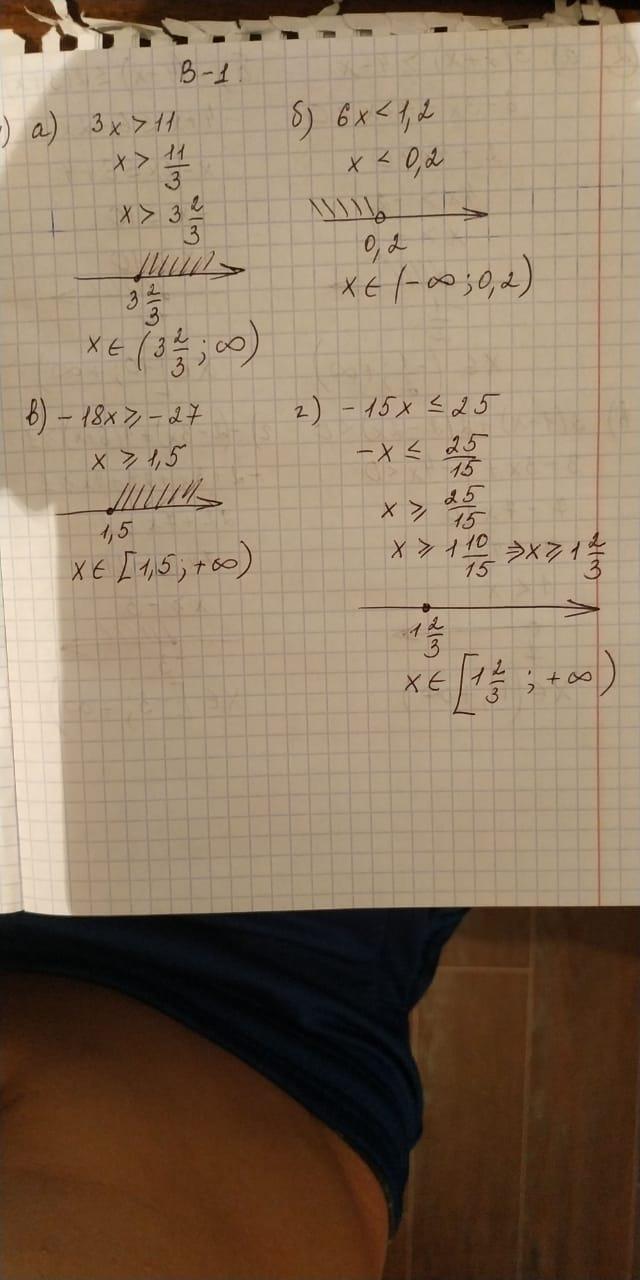 В-1.
) а) 3x > 11
x > 11/3
x > 3 2/3
3 2/3
x ∈ (3 2/3 ; ∞)
б) 6x < 1,2
x < 0,2
0,2
x ∈ (-∞ ; 0,2)
в) -18x ⩾ -27
x ⩾ 1,5
1,5
x ∈ [1,5 ; +∞)
г) -15x ≤ 25
-x ≤ 25/15
x ⩾ 25/15
x ⩾ 1 10/15 ⇒ x ⩾ 1 2/3
1 2/3
x ∈ [1 2/3 ; +∞)